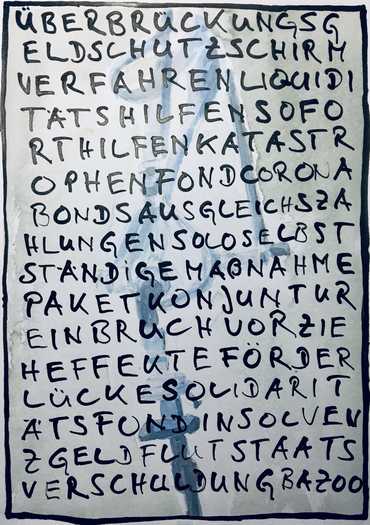 ÜBERBRÜCKUNGSG
ELDSCHUTZSCHIRM
VERFAHRENLIQUIDI
TÄTSHILFENSOFO
RTHILFENKATASTR
OPHENFONDCORONA
BONDSAUSGLEICHSZA
HLUNGENSOLOSELBST
STÄNDIGEMAßNAHME
PAKETKONJUNTUR
EINBRUCHVORZIE
HEFFEKTEFÖRDER
LÜCKESOLIDARIT
ÄTSFONDINSOLVEN
ZGELDFLUTSTAATS
VERSCHULDUNGBAZOO